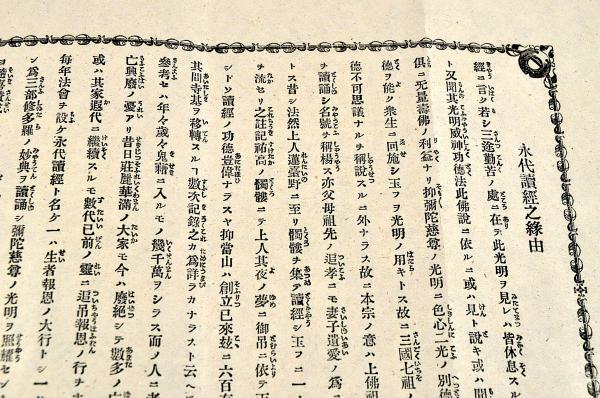 永代讀經之縁由
經ニ言ク若シ三途勤苦ノ處ニ在テ此光明ヲ見レハ皆休息スル
ト又聞其光明威神功德法此佛說ニ依ルニ或ハ見ト說キ或ハ聞
俱ニ无量壽佛ノ利益ナリ抑彌陀慈尊ノ光明ニ色心二光ノ別
德ヲ能ク衆生ニ回施シ玉フヲ光明ノ用キトス故ニ三國七祖ノ
德不可思議ナルヲ稱說スルニ外ナラス故ニ本宗ノ意ハ上佛祖
ヲ讀誦シ名號ヲ稱揚ス亦父母祖先ノ追孝ニモ妻子遺愛ノ爲
トス昔シ法然上人蓮臺野ニ至リ髑髏ヲ集テ讀經シ玉フニ一
ヲ流セリ之註記祐高ノ髑髏ニテ上人其夜ノ夢ニ御吊ニ依テ
シトソ讀經ノ功德豈偉ナラスヤ抑當山ハ創立已來玆ニ六百
其間寺基ヲ移轉スルヿ數次記錄之カ爲詳ラカナラスト云ヘ
叅考セハ年々歲々鬼籍ニ入ルモノ幾千萬ヲシラス而ノ人ニ
亡興廢ノ憂アリ昔日莊嚴華滿ノ大家モ今ハ廢絕シテ數多ノ
或ハ其家遐代ニ繼續スルモ數代已前ノ靈ニ追吊報恩ノ行
每年法會ヲ設ケ永代讀經ト名ケ一ハ生者報恩ノ大行トシ一
シ爲三部修多羅ノ妙典ヲ讀誦シ彌陀慈尊ノ光明ヲ照耀セシ